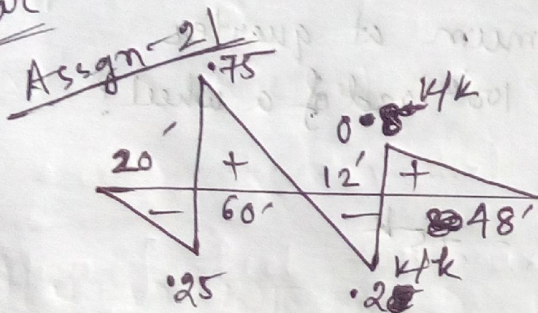 Assgn-21
.75
0.8 k/k
20'
+
12'
+
-
60'
-
48'
.25
.2 k/k